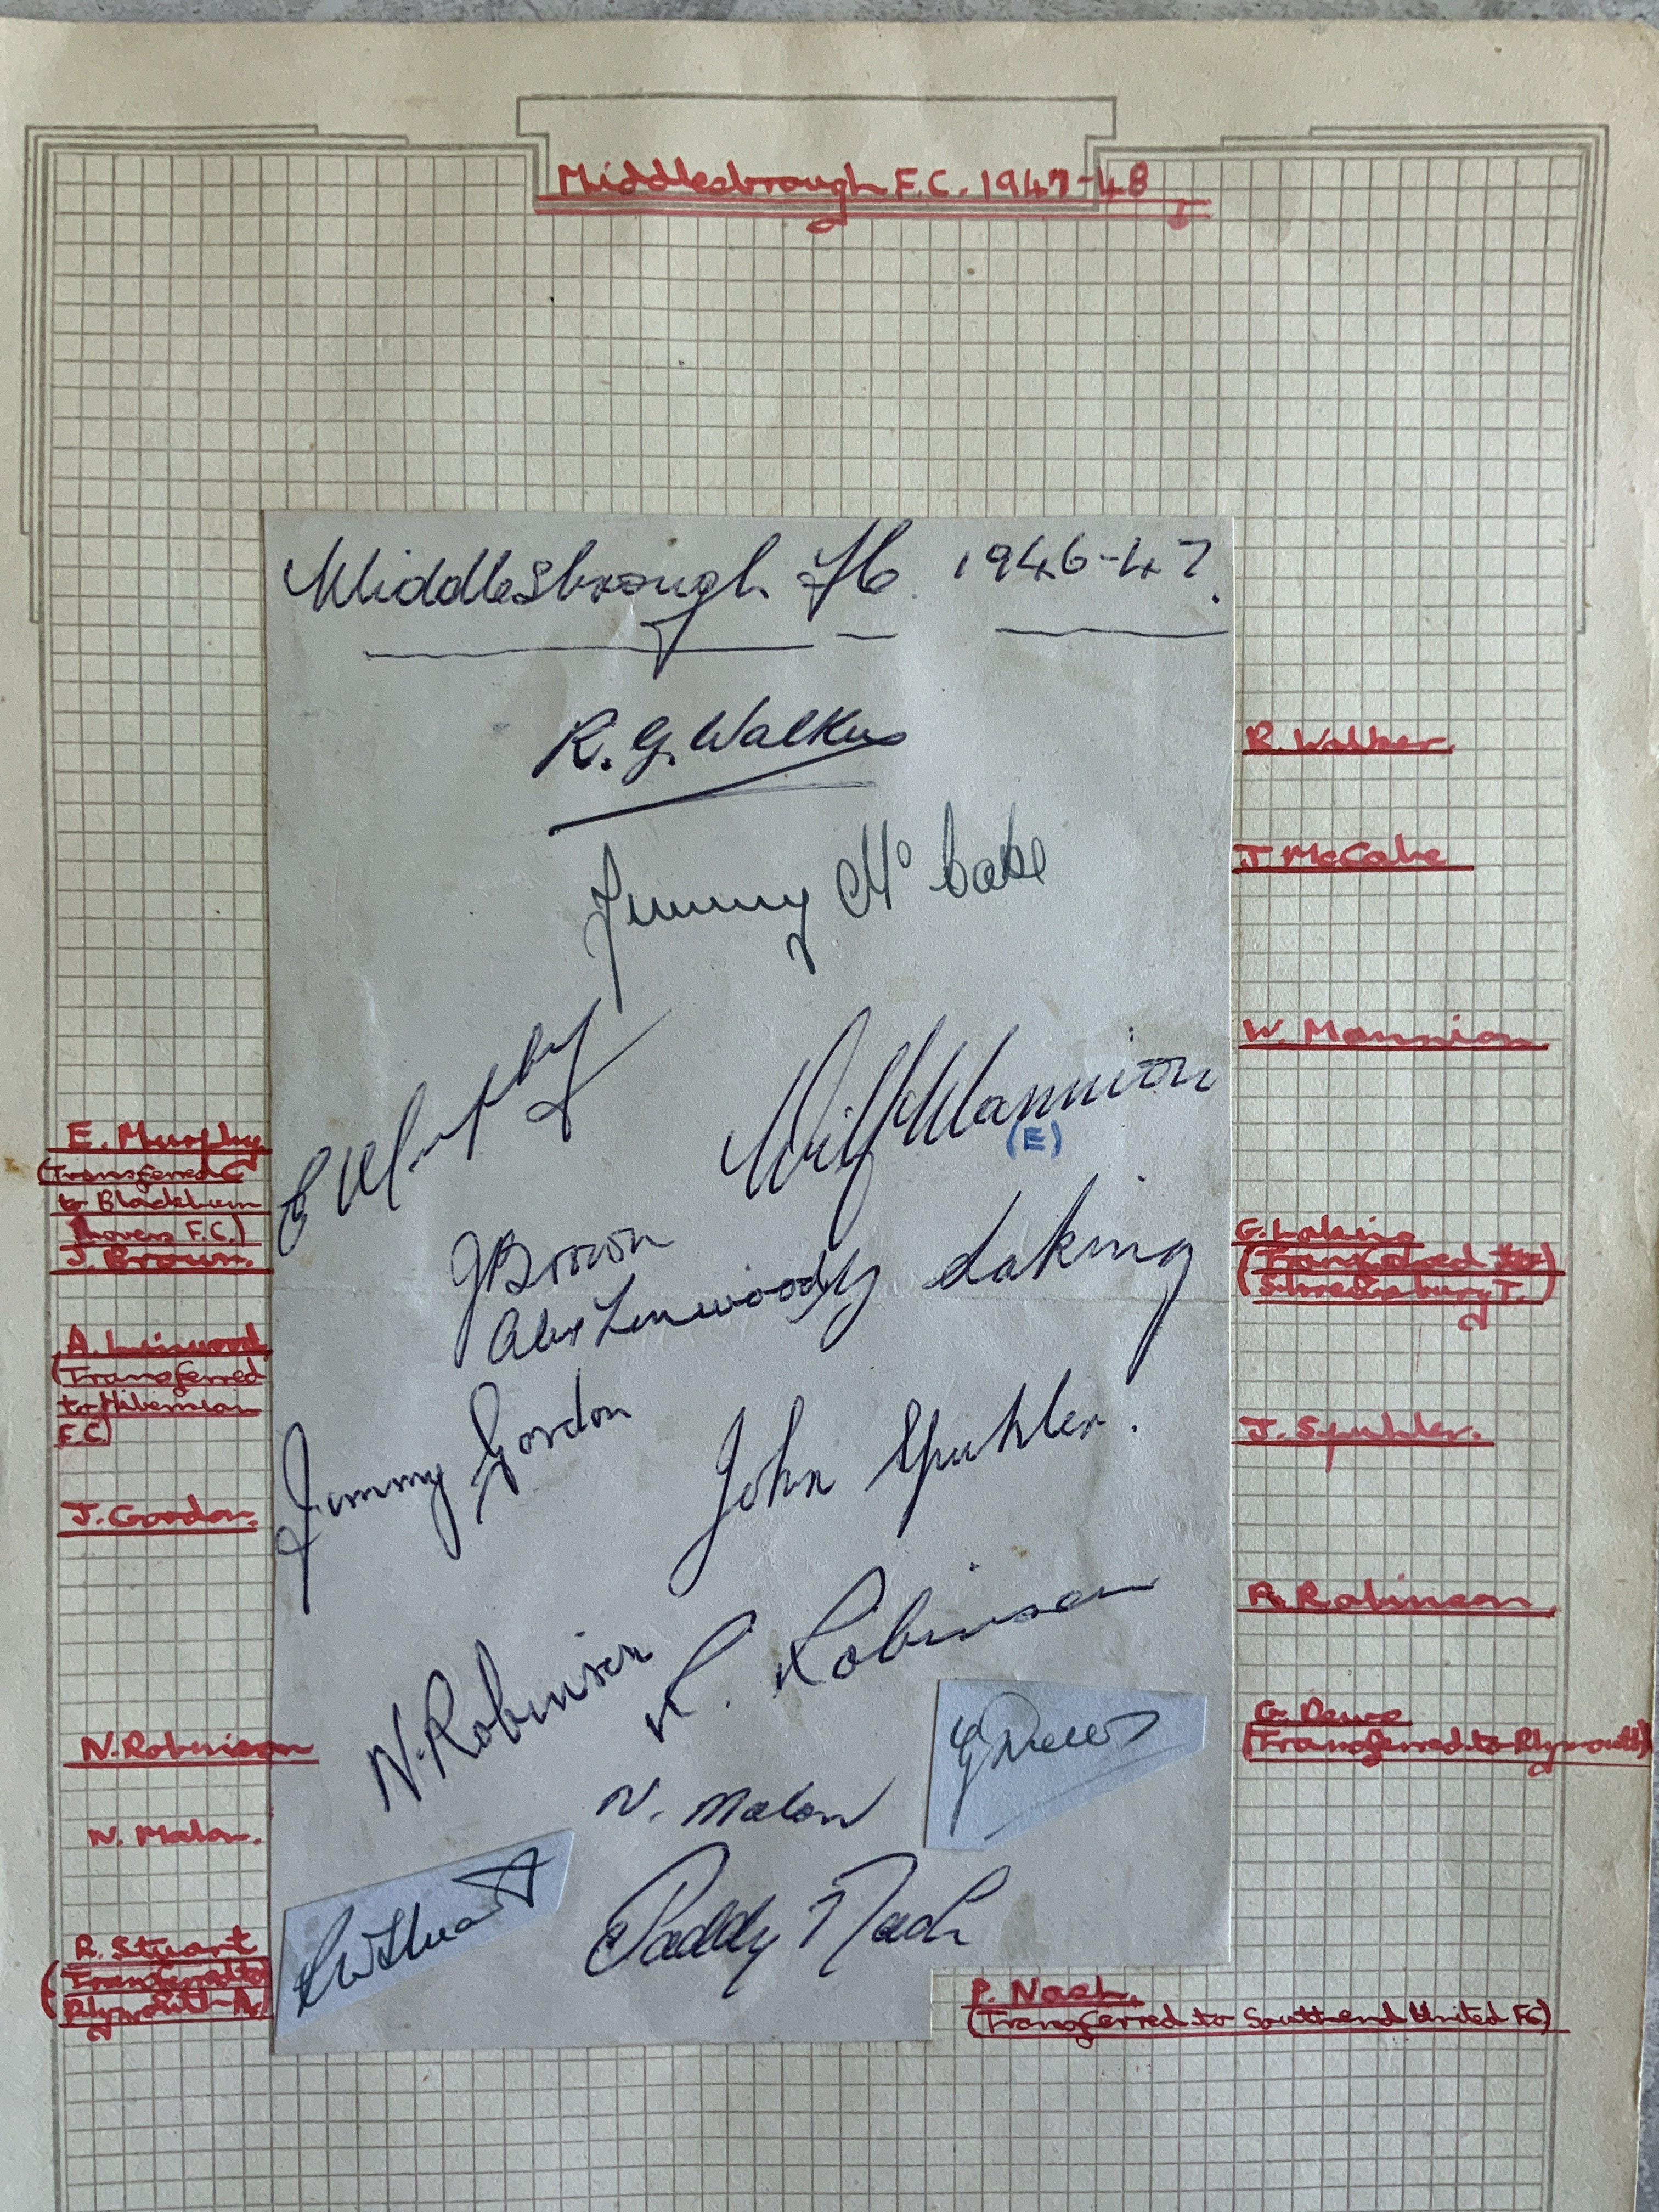 Middlesbrough F.C. 1947-48
Middlesbrough Fc. 1946-47.
R. G. Walker
R. Walker.
Jimmy Mc Cabe
J McCabe
E Murphy
Wilf Mannion
(E)
W. Mannion
E. Murphy
(Transferred
to Blackburn
Rovers F.C.)
J. Brown.
J Brown
G Laking
G. Laking
(Transferred to
Shrewsbury T.)
Alex Linwood
A. Linwood
(Transferred
to Hibernian
F.C)
Jimmy Gordon
J. Gordon.
John Spuhler.
J. Spuhler.
N. Robinson
N. Robinson
R. Robinson
R. Robinson
G Dews
G. Dews
(Transferred to Plymouth)
N. Malan
N. Malan.
RW Stuart
R. Stuart
(Transferred to
Plymouth A.)
Paddy Nash
P. Nash.
(Transferred to Southend United FC)